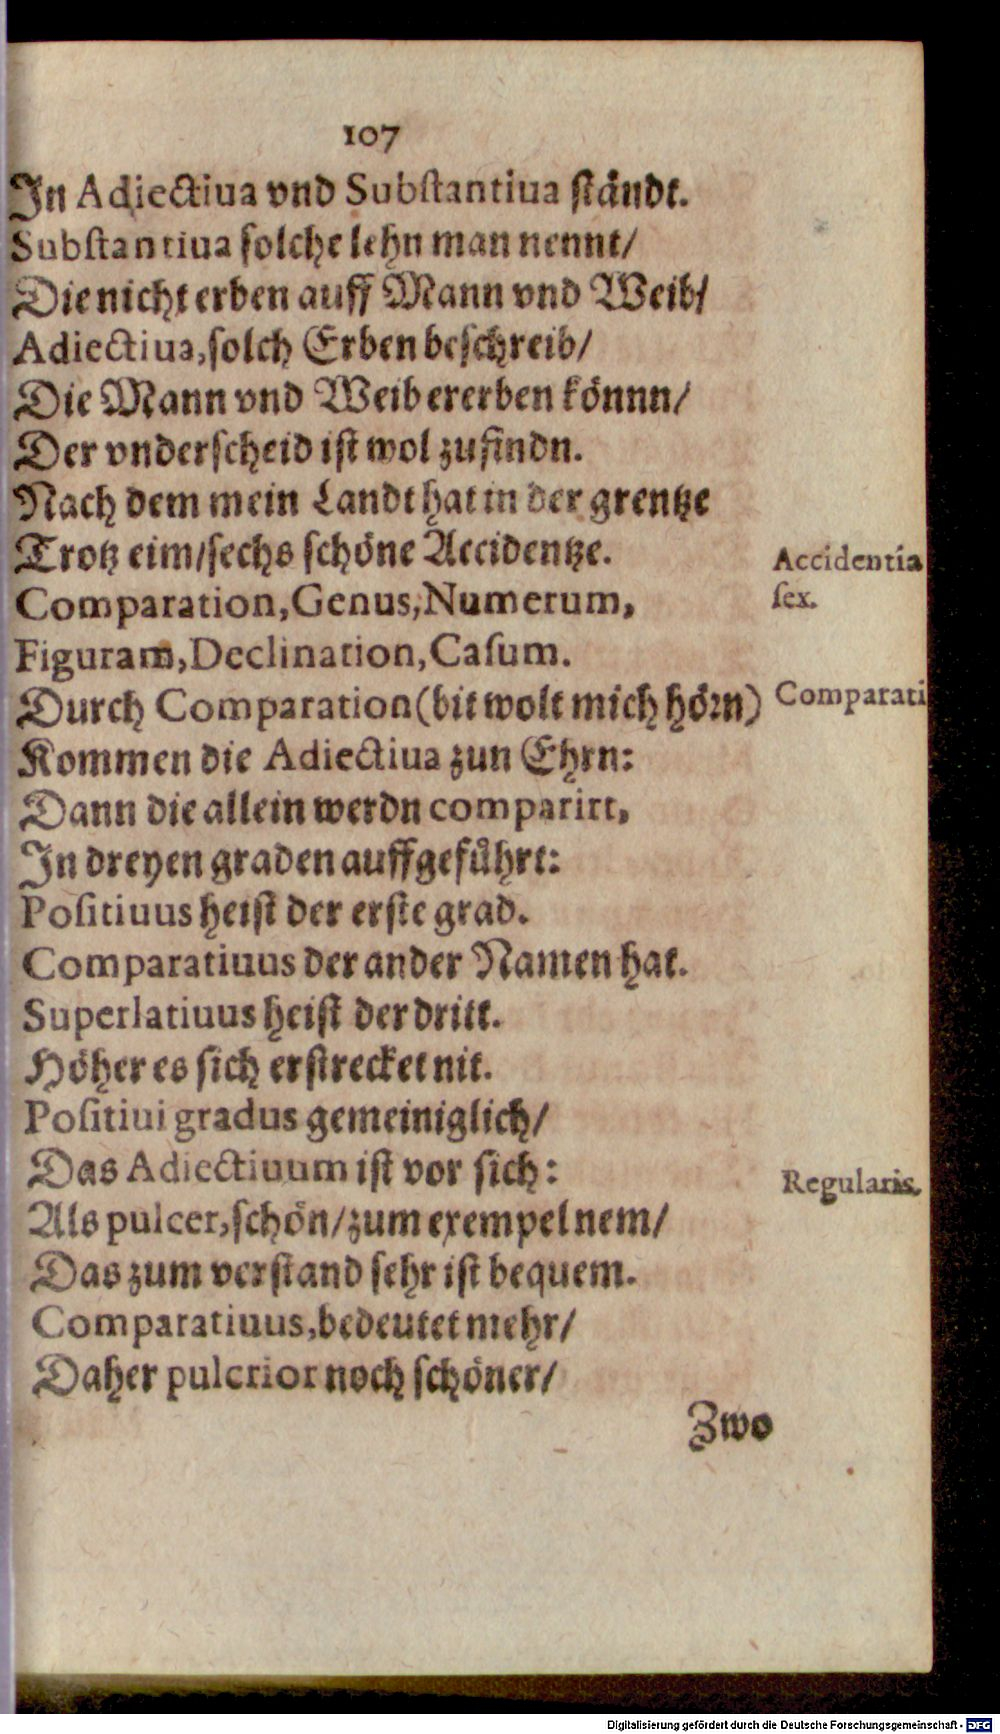 107
In Adiectiua vnd Substantiua ståndt.
Substantiua solche lehn man nennt/
Die nicht erben auff Mann vnd Weib/
Adiectiua, solch Erben beschreib/
Die Mann vnd Weib ererben könnn/
Der vnderscheid ist wol zufindn.
Nach dem mein Landt hat in der grentze
Trotz eim/sechs schöne Accidentze.
Accidentia
sex.
Comparation, Genus, Numerum,
Figuram, Declination, Casum.
Durch Comparation (bit wolt mich hörn)
Comparati
Kommen die Adiectiua zun Ehrn:
Dann die allein werdn comparirt,
In dreyen graden auffgeführt:
Positiuus heist der erste grad.
Comparatiuus der ander Namen hat.
Superlatiuus heist der dritt.
Höher es sich erstrecket nit.
Positiui gradus gemeiniglich/
Das Adiectiuum ist vor sich:
Regularis.
Als pulcer, schön/zum exempel nem/
Das zum verstand sehr ist bequem.
Comparatiuus, bedeutet mehr/
Daher pulcrior noch schöner/
Zwo
Digitalisierung gefördert durch die Deutsche Forschungsgemeinschaft - DFG